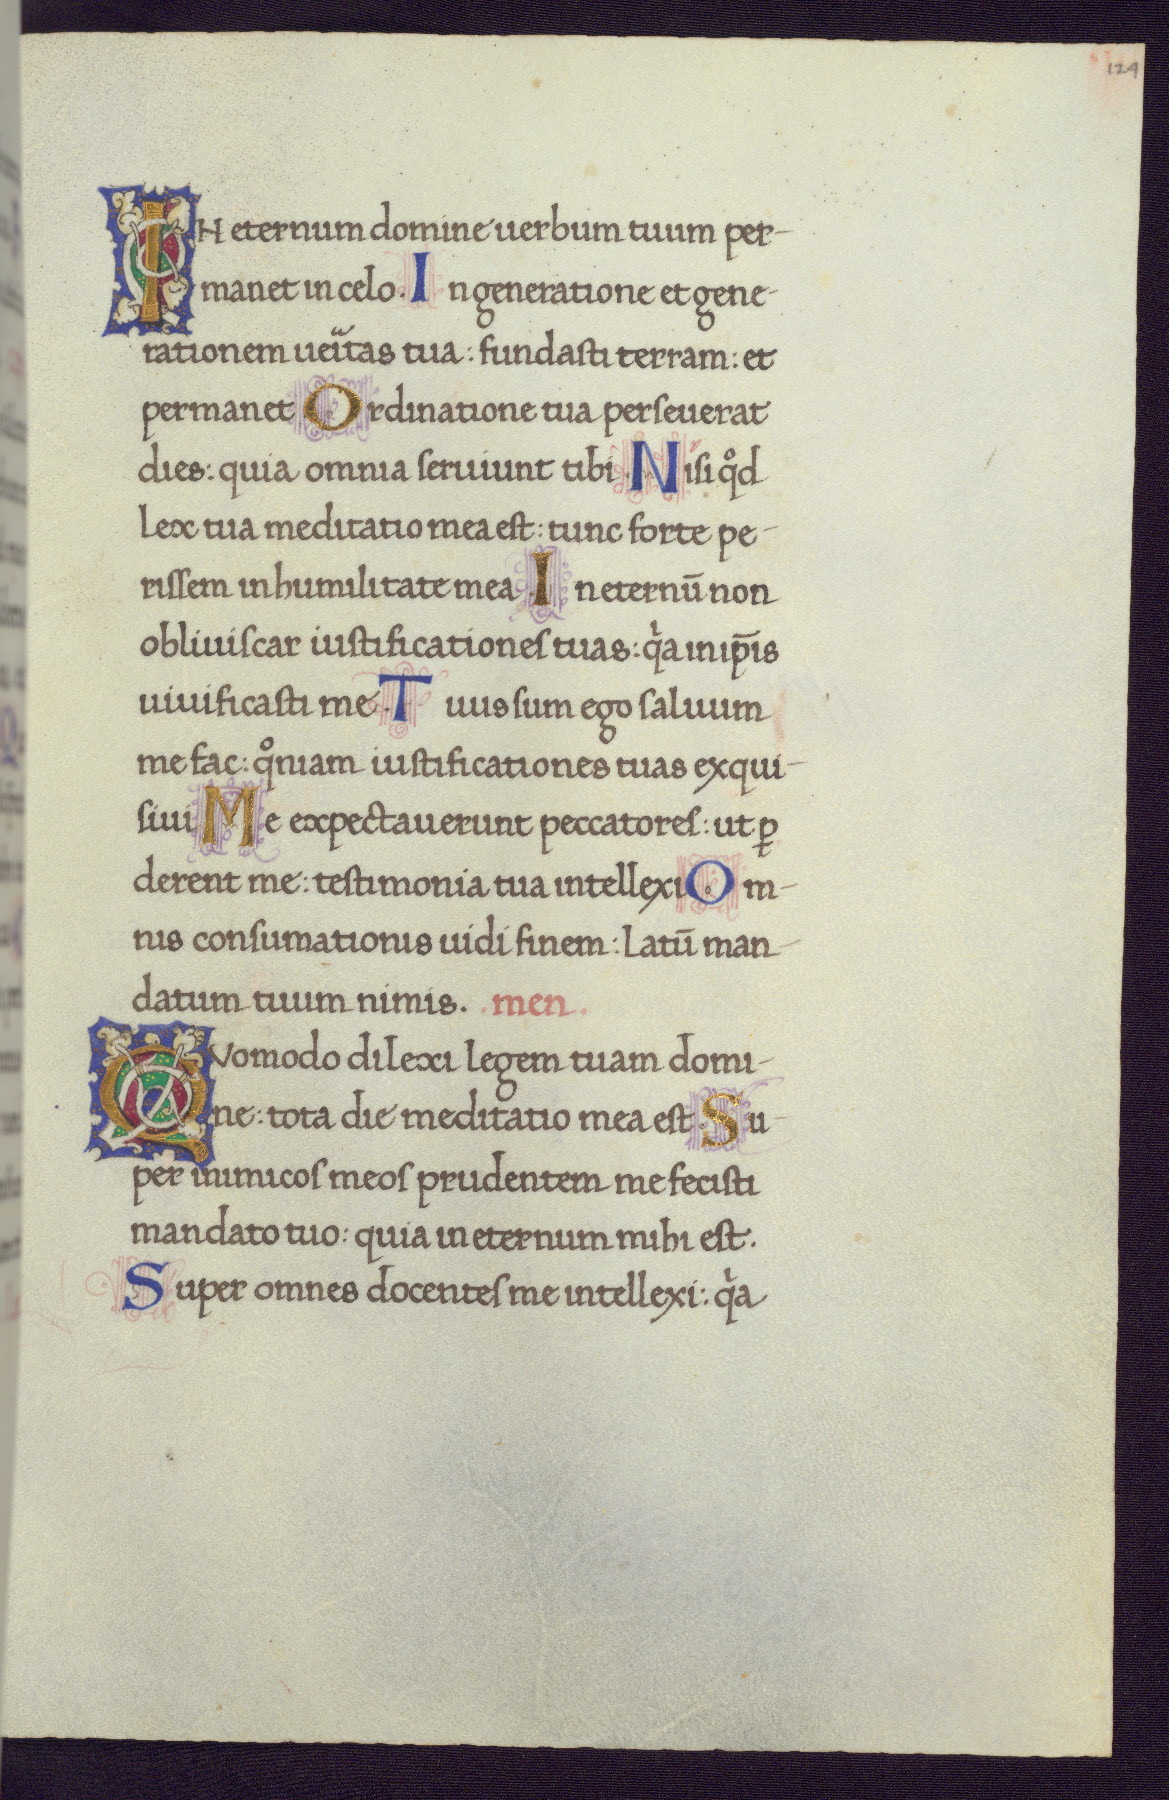 124
IN eternum domine uerbum tuum per-
manet in celo. In generatione et gene-
rationem ueritas tua: fundasti terram: et
permanet Ordinatione tua perseuerat
dies: quia omnia seruiunt tibi. Nisi qͦd
lex tua meditatio mea est: tunc forte pe-
rissem in humilitate mea In eternū non
obliuiscar iustificationes tuas: qͥa in ip̄is
uiuificasti me. Tuus sum ego saluum
me fac: qͦniam iustificationes tuas exqui-
siui Me expectauerunt peccatores: ut ꝑ
derent me: testimonia tua intellexi Om-
nis consumationis uidi finem: Latū man-
datum tuum nimis. .men.
QVomodo dilexi legem tuam domi-
ne: tota die meditatio mea est. Su-
per inimicos meos prudentem me fecisti
mandato tuo: quia in eternum mihi est.
Super omnes docentes me intellexi: qͥa